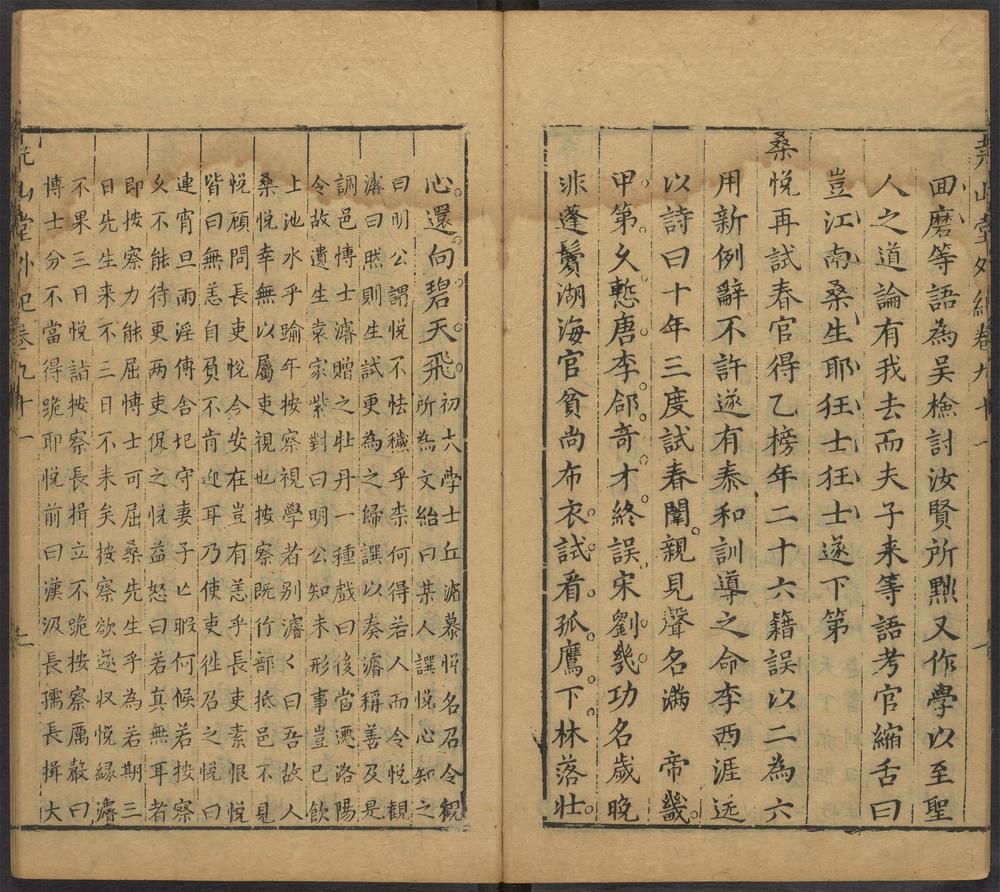 堯山堂外紀卷九十一
回磨等語為吴檢討汝賢所黜又作學以至聖
人之道論有我去而夫子来等語考官縮舌曰
豈江南桑生耶狂士狂士遂下第
桑悅再試春官得乙榜年二十六籍誤以二為六
用新例辭不許遂有泰和訓導之命李西涯送
以詩曰十年三度試春闈親見聲名滿帝畿
甲第久慙唐李郃竒才終誤宋劉㡬功名歲晚
非蓬鬢湖海官貧尚布衣試看孤鷹下林落壮
心還向碧天飛初大學士丘濬慕悅名召令觀
所為文紿曰某人譔悅心知之
曰明公謂悅不怯穢乎柰何得若人而令悅觀
濬曰然則生試更為之歸譔以奏濬稱善及是
調邑博士濬贈之牡丹一種戲曰後當遷洛陽
令故遺生袁家紫對曰明公知未形事豈已飲
上池水乎踰年按察視學者别濬濬曰吾故人
桑悅幸無以屬吏視也按察既行部抵邑不見
悅顧問長吏悅今安在豈有恙乎長吏素恨悅
皆曰無恙自負不肯迎耳乃使吏徃召之悅曰
連宵旦雨淫傳舍圮守妻子亡暇何候若按察
久不能待更两吏促之悅益怒曰若真無耳者
即按察力能屈博士可屈桑先生乎為若期三
日先生来不三日不来矣按察欲遂収悅緣濬
不果三日悅詣按察長揖立不跪按察厲嚴曰
博士分不當得跪耶悅前曰漢汲長孺長揖大
堯山堂外紀卷九十一